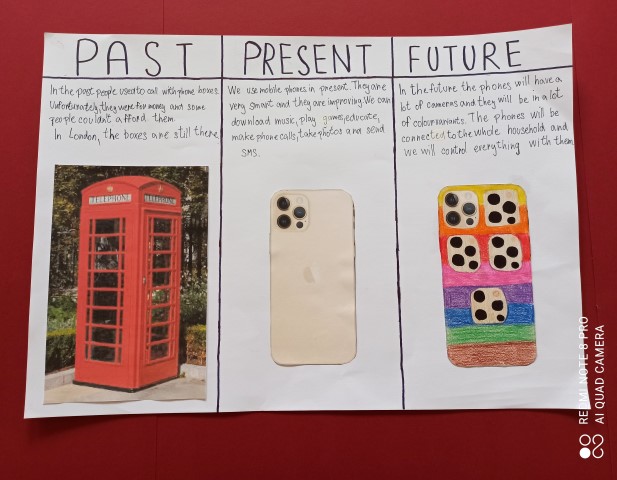 PAST
In the past people used to call with phone boxes.
Unfortunately, they were for money and some
people couldn't afford them.
In London, the boxes are still there
TELEPHONE
TELEPHONE
PRESENT
We use mobile phones in present. They are
very smart and they are improving. We can
download music, play games, educate,
make phone calls, take photos and send
SMS.
FUTURE
In the future the phones will have a
lot of cameras and they will be in a lot
of colour variants. The phones will be
connected to the whole household and
we will control everything with them
REDMI NOTE 8 PRO
AI QUAD CAMERA